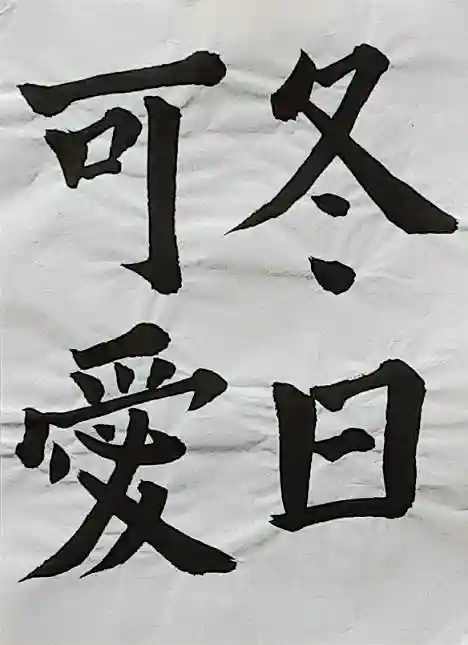 冬日
可愛